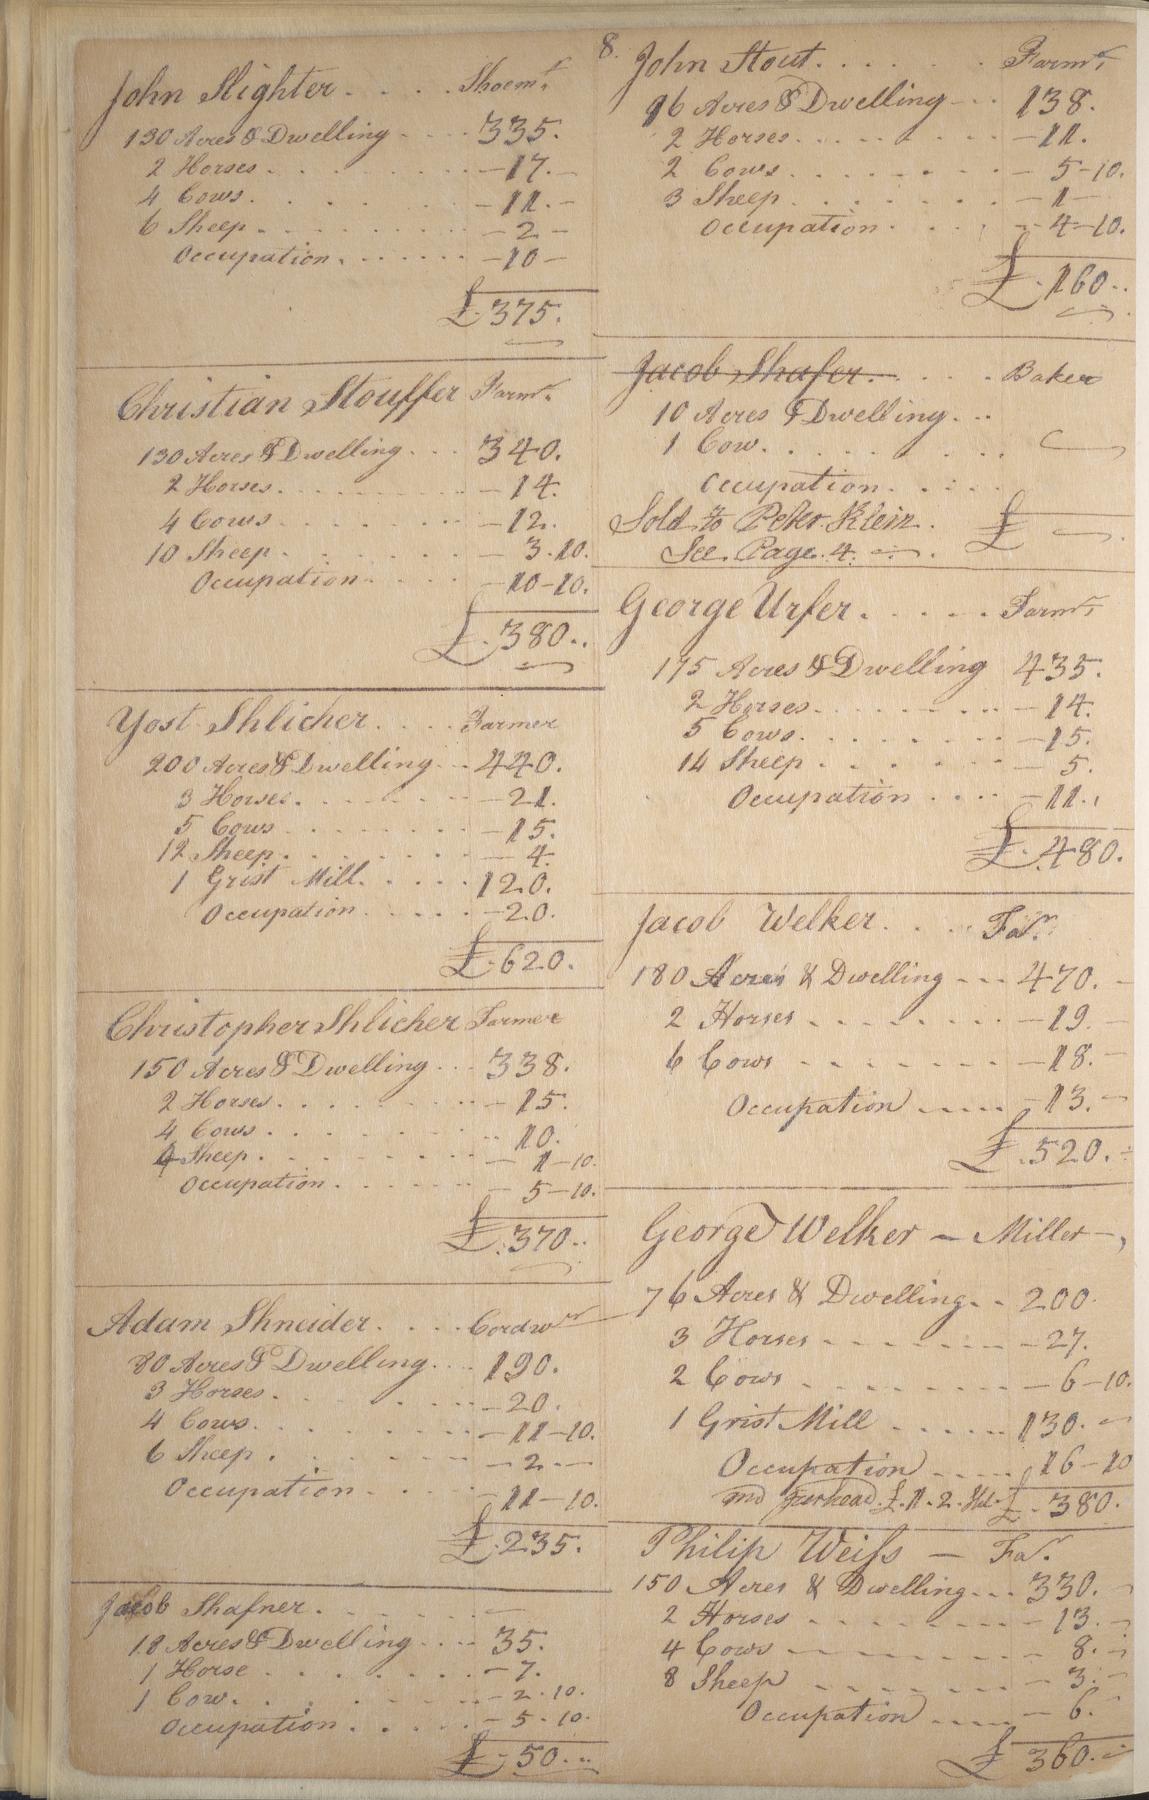 8.
John Slighter . . . . Shoemr
130 Acres & Dwelling . . . 335.
2 Horses . . . . . . . . - 17. -
4 Cows. . . . . . . . - 11. -
6 Sheep . . . . . . . . . - 2 -
Occupation . . . . . . . - 10 -
£ 375.
Christian Stouffer Farmr
130 Acres & Dwelling . . . 340.
2 Horses. . . . . . . . . - 14.
4 Cows . . . . . . . . - 12.
10 Sheep . . . . . . . . - 3.10.
Occupation . . . . . - 10-10.
£. 380. .
Yost Shlicher . . . . Farmer
200 Acres & Dwelling . . . 440.
3 Horses. . . . . . . . - 21.
5 Cows . . . . . . . . - 15.
12 Sheep . . . . . . . . - 4.
1 Grist Mill. . . . . . 120.
Occupation . . . . . - 20.
£. 620.
Christopher Shlicher Farmer
150 Acres & Dwelling . . . 338.
2 Horses . . . . . . . . - 15.
4 Cows . . . . . . . . 10.
4 Sheep . . . . . . . . - 1-10.
Occupation . . . . . . - 5-10.
£. 370. .
Adam Shneider. . . . Cordwr
80 Acres & Dwelling. . . 190.
3 Horses. . . . . . . . - 20.
4 Cows. . . . . . . . - 11-10.
6 Sheep . . . . . . . . - 2. -
Occupation . . . . . - 11-10.
£. 235.
Jacob Shafner. . . . . . -
18 Acres & Dwelling . . . 35.
1 Horse . . . . . . . - 7.
1 Cow. . . . . . . . . - 2.10.
Occupation . . . . . - 5.10.
£ - 50. . .
John Stout. . . . . . Farmr
96 Acres & Dwelling - . . 138.
2 Horses. . . . . . . . - 11.
2 Cows . . . . . . . - 5-10.
3 Sheep . . . . . . . - 1 -
Occupation . . . . - 4-10.
£. 160. .
Jacob Shafer. . . . . . Baker
10 Acres & Dwelling. . .
1 Cow. . . . . . . .
Occupation. . . . .
Sold to Peter Klein. £
See Page. 4.
George Urfer. . . . . . Farmr
175 Acres & Dwelling 435.
2 Horses. . . . . . . - 14.
5 Cows. . . . . . . . - 15.
14 Sheep . . . . . . . - 5.
Occupation . . . . - 11.
£. 480.
Jacob Welker. . . . Far.
180 Acres & Dwelling - - - 470. -
2 Horses - - - - - - - - 19. -
6 Cows - - - - - - - - 18. -
Occupation - - - - - 13. -
£. 520. -
George Welker - Miller -,
76 Acres & Dwelling. - 200.
3 Horses - - - - - - - 27.
2 Cows - - - - - - - - 6-10.
1 Grist Mill - - - - - 130. -
Occupation - - - - 16-10
and £. 11. 2. £ - 380.
Philip Weiss - Far.
150 Acres & Dwelling - - - 330. -
2 Horses - - - - - - - 13. -
4 Cows - - - - - - - - 8. -
8 Sheep - - - - - - - 3. -
Occupation - - - - - 6. -
£ 360. -